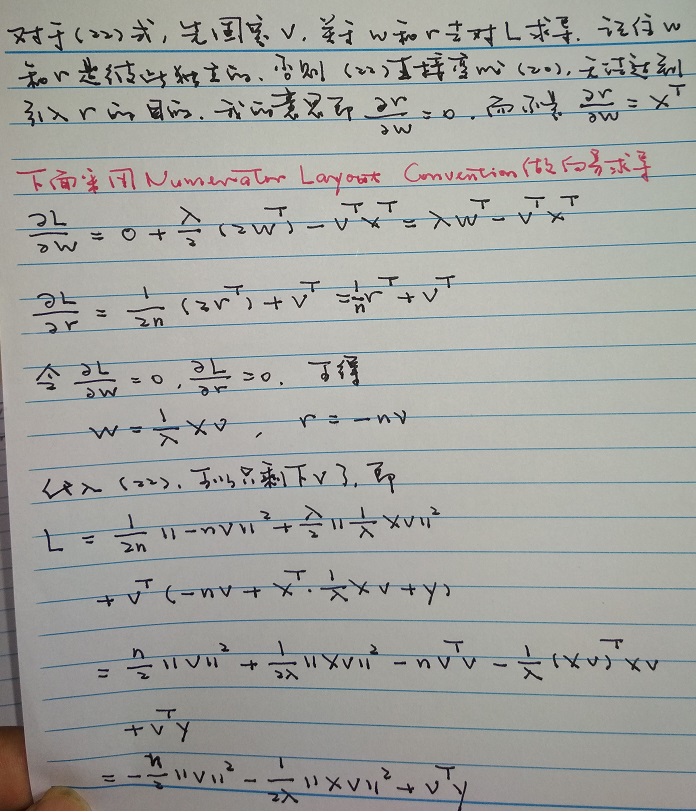 对于(22)式,先固定V,关于w和r去对L求导.记住w
和r是彼此独立的.否则(22)直接变成(20),无法达到
引入r的目的.我的意思即 ∂r/∂w = 0.而不是 ∂r/∂w = X^T
下面采用Numerator Layout Convention做向量求导
∂L/∂w = 0 + λ/2 (2w^T) - v^T X^T = λw^T - v^T X^T
∂L/∂r = 1/2n (2r^T) + v^T = 1/n r^T + v^T
令 ∂L/∂w = 0, ∂L/∂r = 0. 可得
w = 1/λ Xv, r = -nv
代入(22).可以只剩下v了,即
L = 1/2n ||-nv||^2 + λ/2 ||1/λ Xv||^2
+ v^T (-nv - X^T · 1/λ Xv + y)
= n/2 ||v||^2 + 1/2λ ||Xv||^2 - v^T v n - 1/λ (Xv)^T Xv
+ v^T y
= -n/2 ||v||^2 - 1/2λ ||Xv||^2 + v^T y